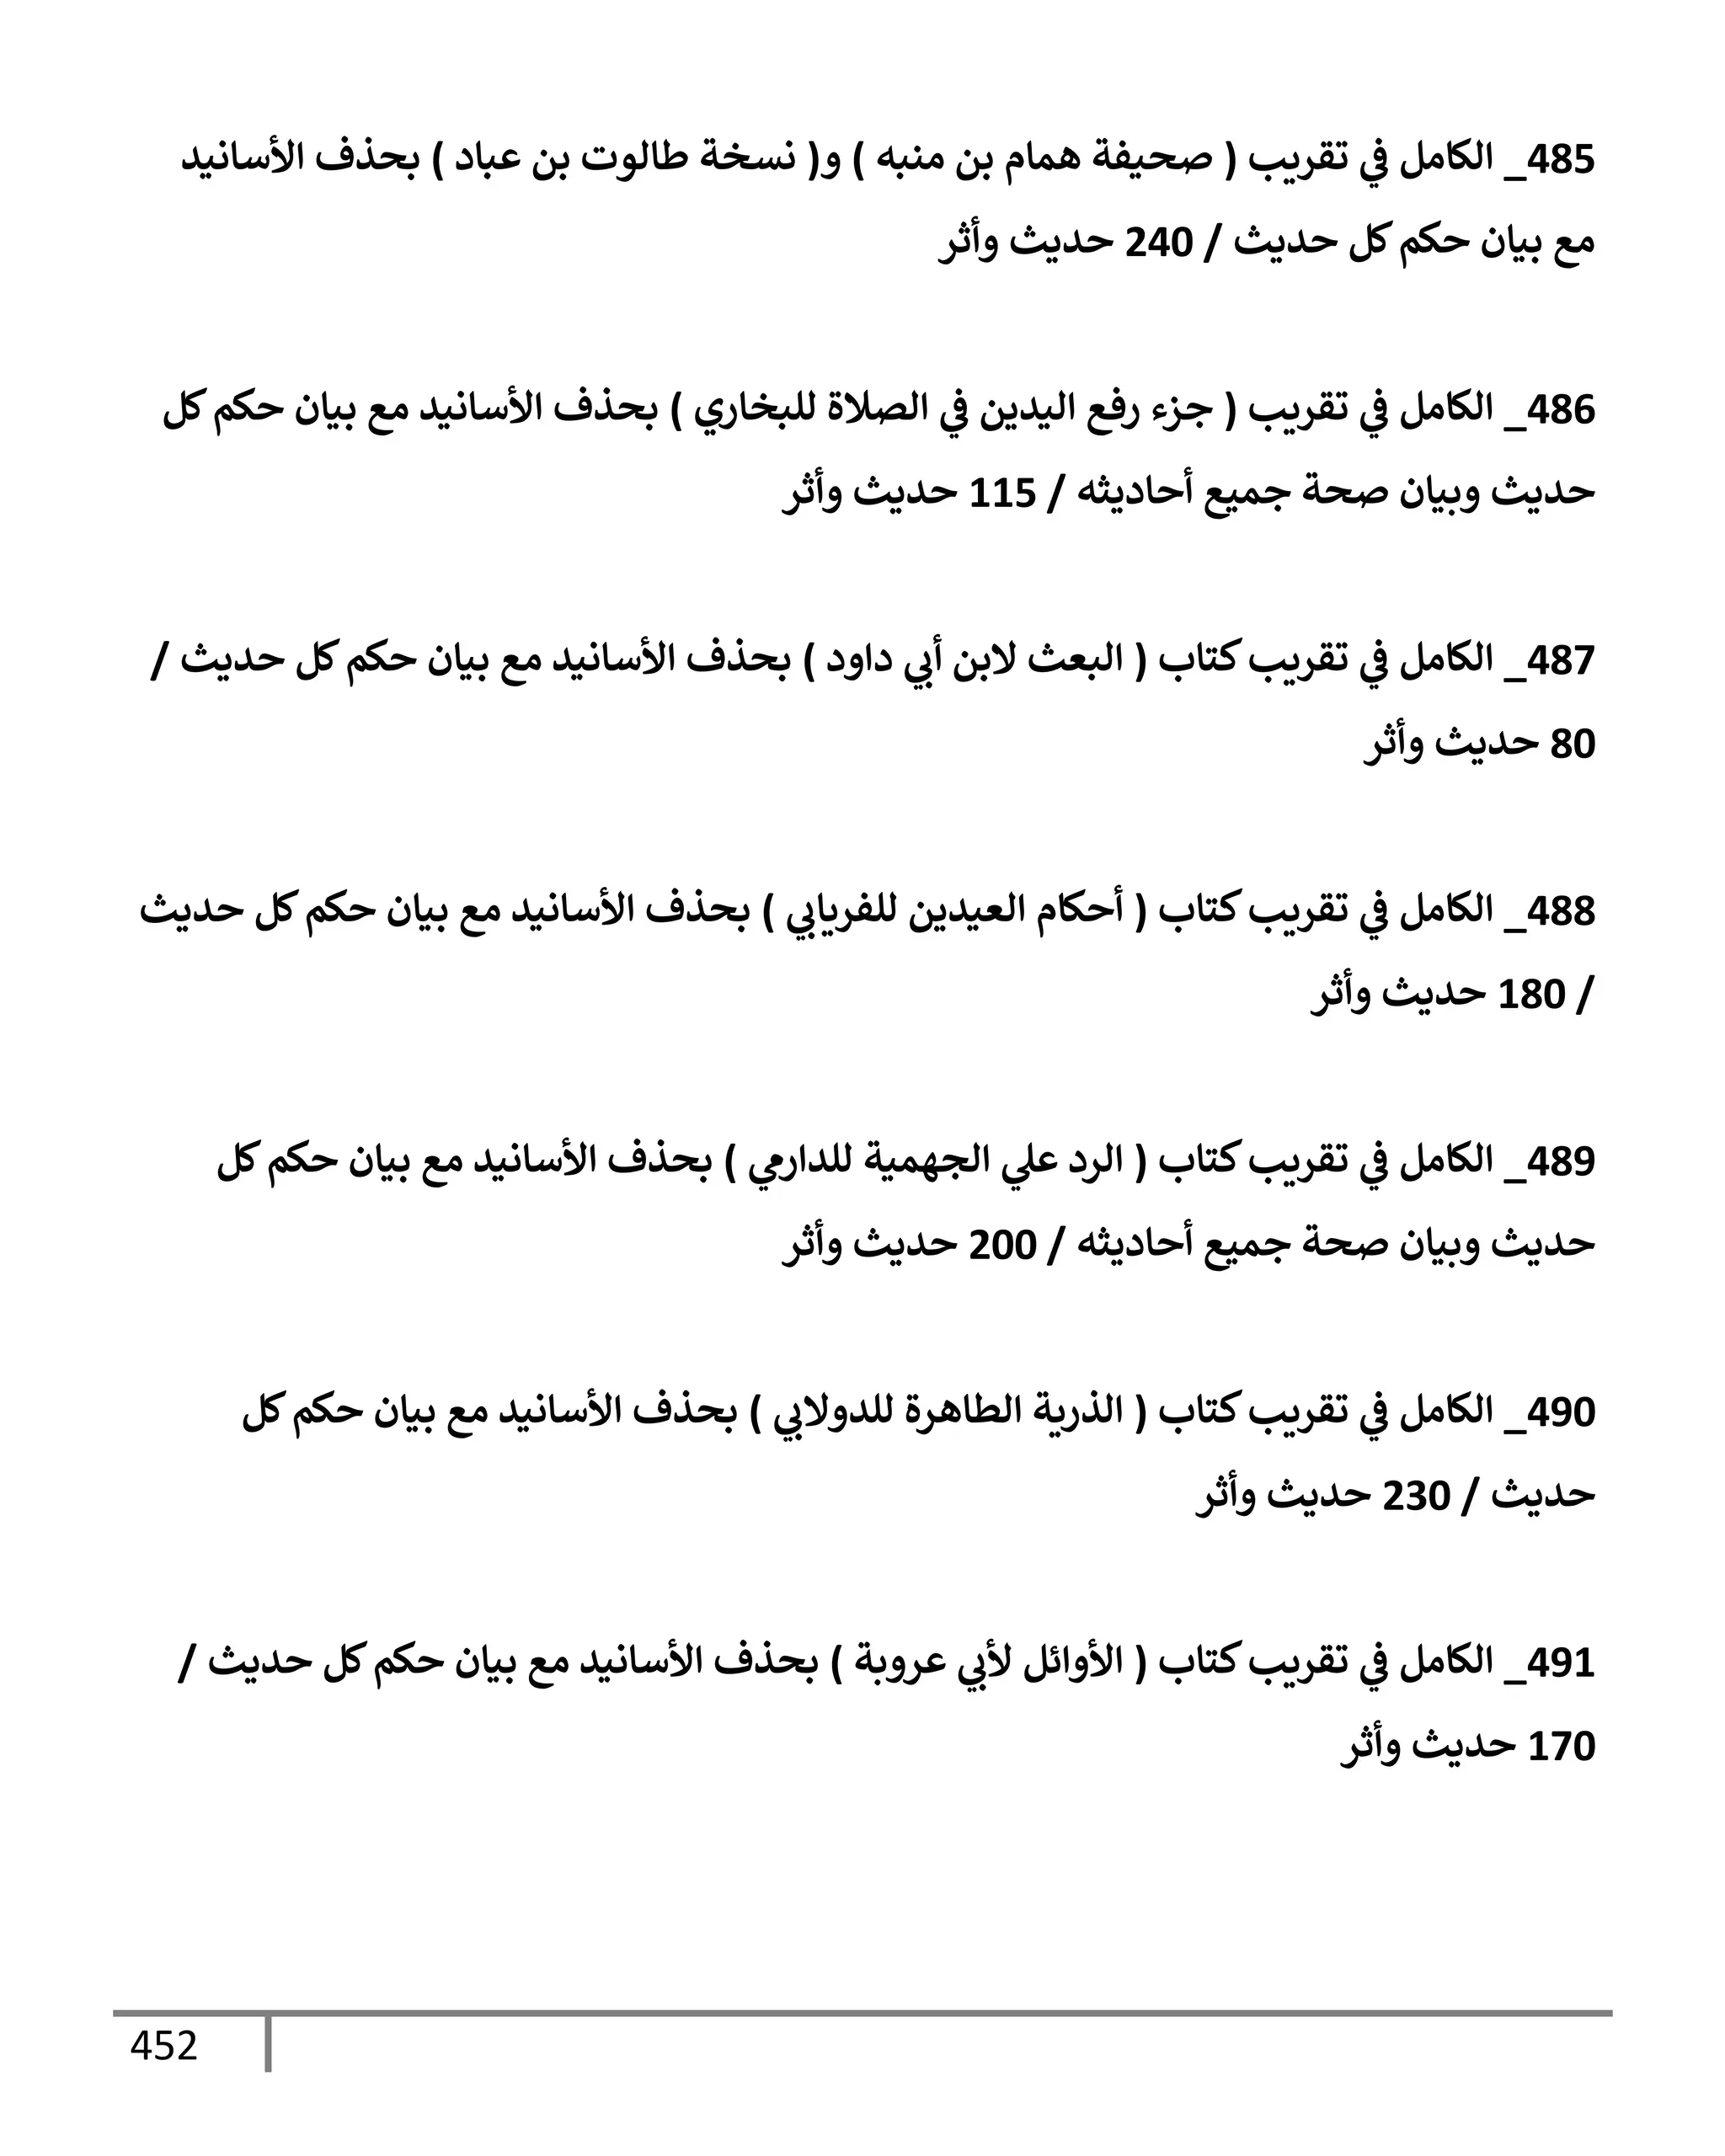 485_ الكامل في تقريب ( صحيفة همام بن منبه ) و( نسخة طالوت بن عباد ) بحذف الأسانيد
مع بيان حكم كل حديث / 240 حديث وأثر
486_ الكامل في تقريب ( جزء رفع اليدين في الصلاة للبخاري ) بحذف الأسانيد مع بيان حكم كل
حديث وبيان صحة جميع أحاديثه / 115 حديث وأثر
487_ الكامل في تقريب كتاب ( البعث لابن أبي داود ) بحذف الأسانيد مع بيان حكم كل حديث /
80 حديث وأثر
488_ الكامل في تقريب كتاب ( أحكام العيدين للفريابي ) بحذف الأسانيد مع بيان حكم كل حديث
/ 180 حديث وأثر
489_ الكامل في تقريب كتاب ( الرد علي الجهمية للدارمي ) بحذف الأسانيد مع بيان حكم كل
حديث وبيان صحة جميع أحاديثه / 200 حديث وأثر
490_ الكامل في تقريب كتاب ( الذرية الطاهرة للدولابي ) بحذف الأسانيد مع بيان حكم كل
حديث / 230 حديث وأثر
491_ الكامل في تقريب كتاب ( الأوائل لأبي عروبة ) بحذف الأسانيد مع بيان حكم كل حديث /
170 حديث وأثر
452